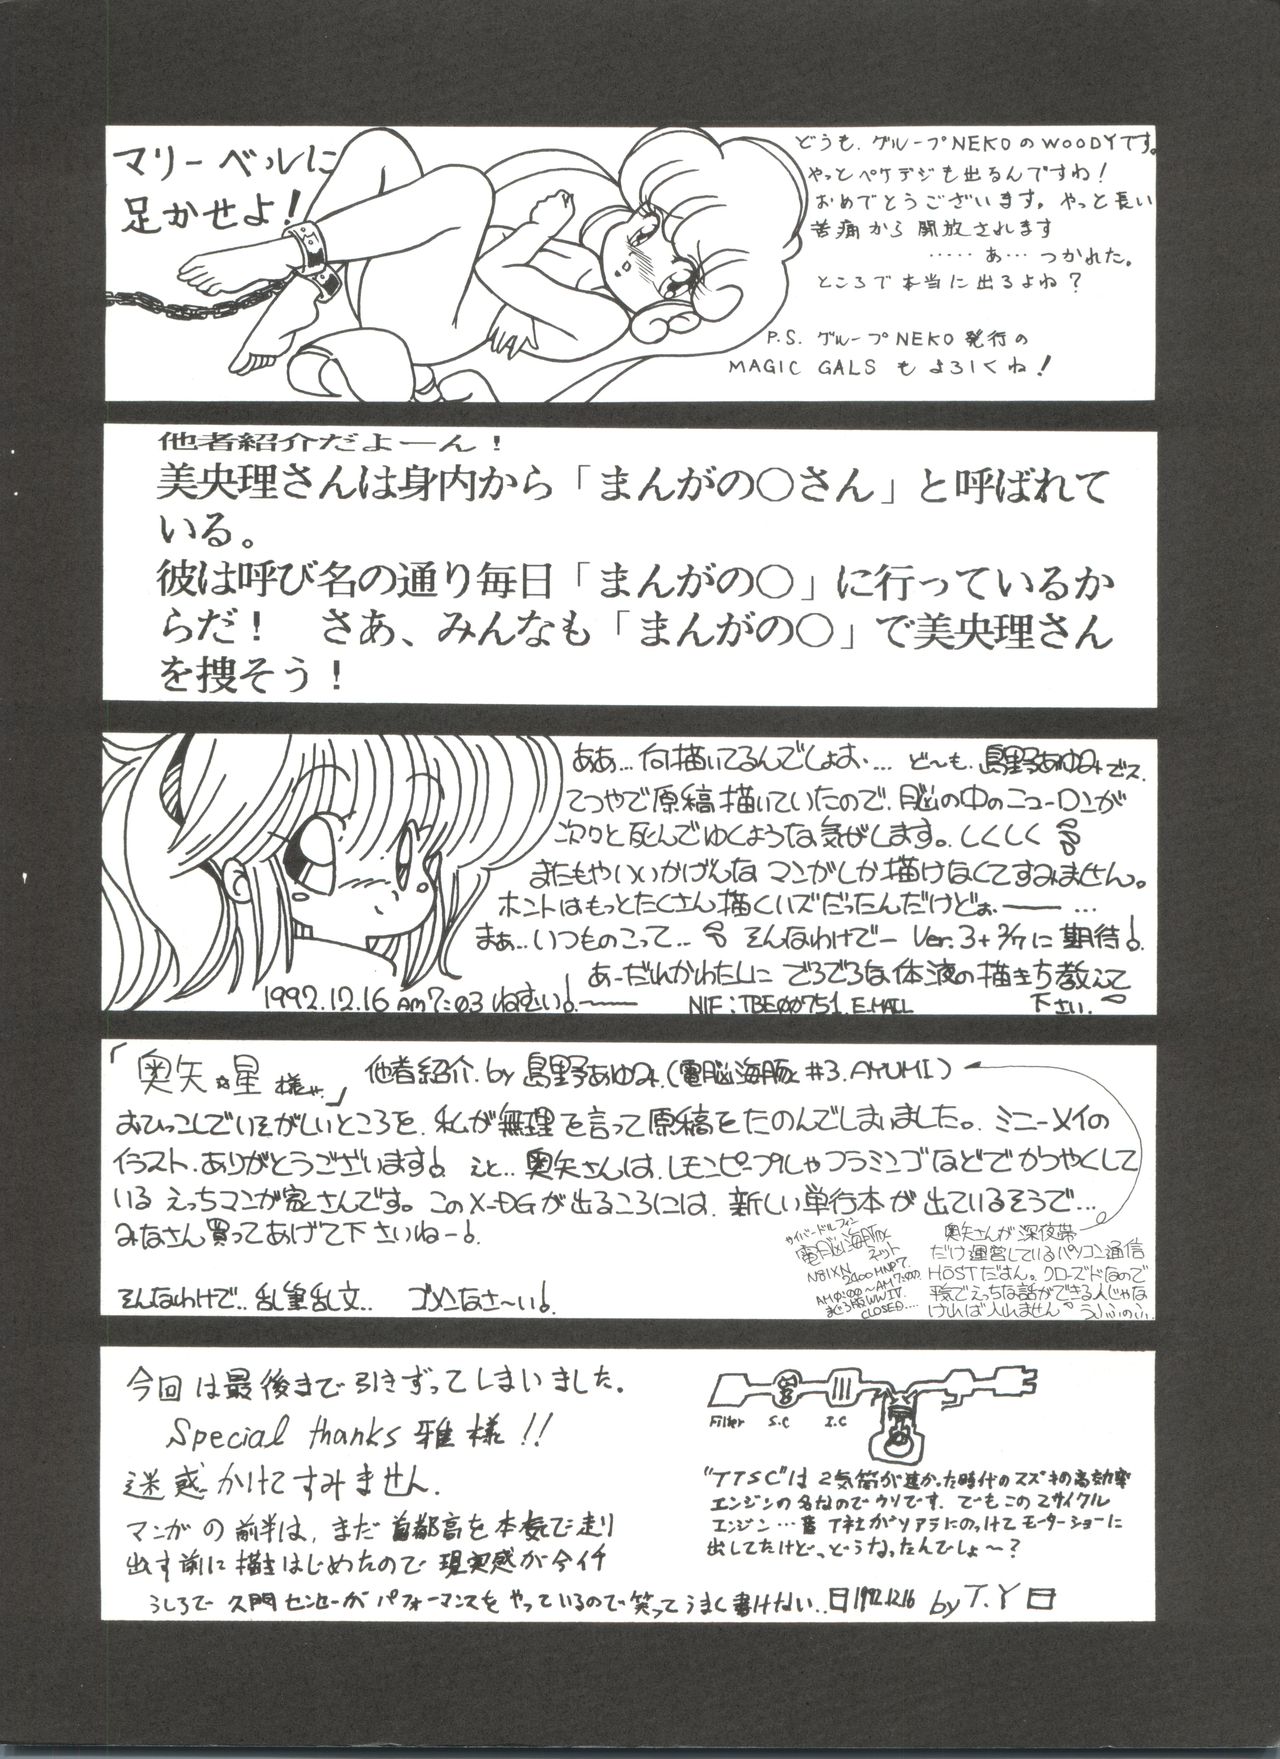 マリーベルに
足かせよ！
どうも、グループNEKOのWOODYです。
やっとペケデジも出るんですね！
おめでとうございます。やっと長い
苦痛から開放されます
‥‥‥あ…つかれた。
ところで本当に出るよね？
P.S. グループNEKO発行の
MAGIC GALSもよろしくね！
他者紹介だよーん！
美央理さんは身内から「まんがの○さん」と呼ばれて
いる。
彼は呼び名の通り毎日「まんがの○」に行っているか
らだ！　さあ、みんなも「まんがの○」で美央理さん
を捜そう！
ああ…何描いてるんでしょお…‥ ど〜も、島野あゆみでス。
てつやで原稿描いていたので、脳の中のニューロンが
次々と死んでゆくような気がします。しくしく
またもやいいかげんなマンガしか描けなくてすみません。
ホントはもっとたくさん描くハズだったんだけどぉ――…
まぁ…いつものこって‥ そんなわけでー Ver.3+2/7に期待！
あーだれかわたしに でろでろな体液の描き方教えて
下さい。
1992.12.16 AM7:03 ねむい！――
NIF:TBE00751. E-MAIL
「奥矢☆星様」
他者紹介.by 島野あゆみ.(電脳海豚 #3.AYUMI)
おひっこしでいそがしいところを、私が無理を言って原稿をたのんでしまいました。ミニーメイの
イラスト、ありがとうございます！ えと‥奥矢さんは、レモンピープルしゃフラミンゴなどでかつやくして
いるえっちマンガ家さんです。このX-DGが出るころには、新しい単行本が出ているそうで…
みなさん買ってあげて下さいねー！
そんなわけで‥乱筆乱文‥ ゴメンなさ〜い！
サイバードルフィン
電脳海豚
ネット
N81XN
2400 MNP7.
AM0:00〜AM7:00
まぐろ版WWIV
CLOSED‥‥
奥矢さんが深夜帯
だけ運営しているパソコン通信
HOSTだす。クローズドなので
平気でえっちな話ができる人じゃな
ければ入れません うふふのふ
今回は最後まで引きずってしまいました。
Special thanks 雅様!!
迷惑かけてすみません.
マンガの前半は、まだ首都高を本気で走り
出す前に描きはじめたので現実感が今イチ
うしろで久門センセーがパフォーマンスをやっているので笑ってうまく書けない‥
1992.12.16 by T.Y
Filter S.C I.C
"TTSC"は2気筒が速かった時代のマズキの高効率
エンジンの名なのでウソです。でもこの2サイクル
エンジン…昔T社がソアラにのっけてモーターショーに
出してたけどっどうなったんでしょ〜？